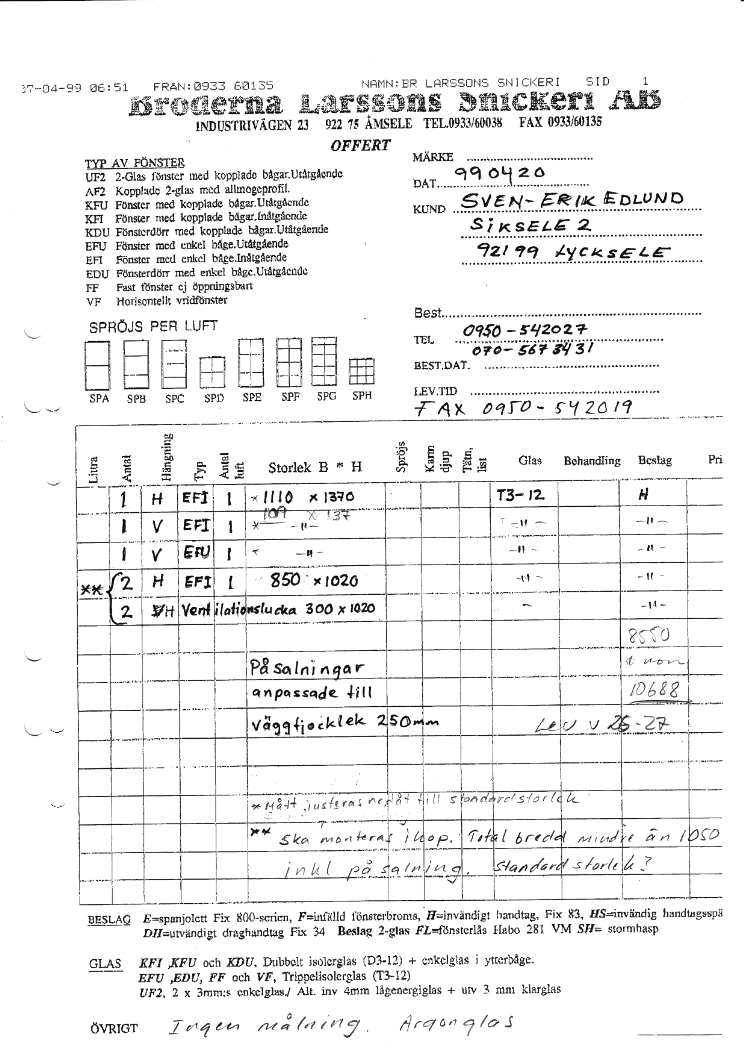 37-04-99 06:51 FRAN:0933 60135 NAMN:BR LARSSONS SNICKERI SID 1
Bröderna Larssons Snickeri AB
INDUSTRIVÄGEN 23 922 75 ÅMSELE TEL.0933/60038 FAX 0933/60135
OFFERT
TYP AV FÖNSTER
UF2 2-Glas fönster med kopplade bågar.Utåtgående
AF2 Kopplade 2-glas med allmogeprofil.
KFU Fönster med kopplade bågar.Utåtgående
KFI Fönster med kopplade bågar.Inåtgående
KDU Fönsterdörr med kopplade bågar.Utåtgående
EFU Fönster med enkel båge.Utåtgående
EFI Fönster med enkel båge.Inåtgående
EDU Fönsterdörr med enkel båge.Utåtgående
FF Fast fönster ej öppningsbart
VF Horisontellt vridfönster
MÄRKE
DAT. 990420
KUND SVEN-ERIK EDLUND
SIKSELE 2
92199 LYCKSELE
Best.
TEL 0950-542027
070-5673431
BEST.DAT.
LEV.TID
FAX 0950-542019
SPRÖJS PER LUFT
SPA SPB SPC SPD SPE SPF SPG SPH
Littra Antal Hängning Typ Antal luft Storlek B * H Spröjs Karm djup Tätn. list Glas Behandling Beslag Pri
1 H EFI 1 *1110 x 1370 T3-12 H
109 x 137
1 V EFI 1 * -"- -"- -"-
1 V EFU 1 * -"- -"- -"-
** 2 H EFI 1 850 x 1020 -"- -"-
2 VH Ventilationslucka 300 x 1020 - -"-
8550
Påsalningar t mom
anpassade till 10688
väggtjocklek 250mm Lev v 26-27
*Mått justeras nedåt till standardstorlek
** Ska monteras ihop. Total bredd mindre än 1050
inkl påsalning. Standard storlek?
BESLAG E=spanjolett Fix 800-serien, F=infälld fönsterbroms, H=invändigt handtag, Fix 83, HS=invändig handtagsspä
DH=utvändigt draghandtag Fix 34 Beslag 2-glas FL=fönsterlås Habo 281 VM SH= stormhasp
GLAS KFI ,KFU och KDU, Dubbelt isolerglas (D3-12) + enkelglas i ytterbåge.
EFU ,EDU, FF och VF, Trippelisolerglas (T3-12)
UF2, 2 x 3mm:s enkelglas./ Alt. inv 4mm lågenergiglas + utv 3 mm klarglas
ÖVRIGT Ingen målning. Argonglas